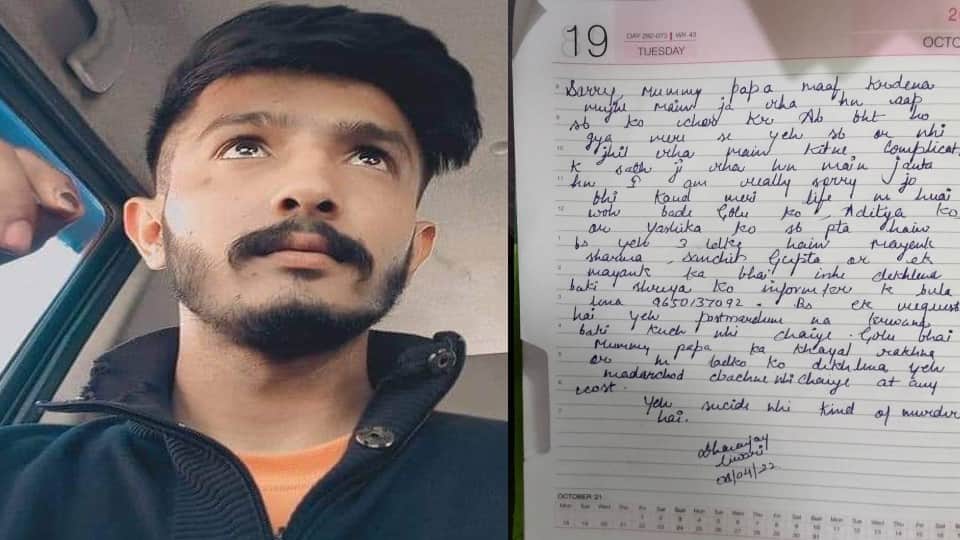 19
DAY 292-073 | WK 43
TUESDAY
OCTO
Sorry Mummy papa maaf kardena
mujhe main ja rha hn aap
sb ko chod kr Ab bht ho
gya meri se yeh sb or nhi
jhil rha main kitne complicat
k sath ji rha hn main janta
hn I am really sorry jo
bhi kand meri life m huai
woh bade Golu ko, Aditya ko
or Yashika ko sb pta hain
bs yeh 3 ldke hain Mayank
sharma, Sanchit Gupta or ek
mayank ka bhai inhe dekhlena
baki shreya ko inform kr k bula
lena 9650137092. Bs ek request
hai yeh postmardum na krwana
baki kuch nhi chaiye Golu bhai
Mummy papa ka khayal rakhna
or in ladko ko dekhlena yeh
madarchod bachne nhi chaiye at any
cost.
Yeh sucide nhi kind of murder
hai.
Dhananjay
Tiwari
08/04/22
OCTOBER 21
Mon Tue Wed Thu Fri Sat Sun Mon Tue Wed Thu Fri Sat Sun